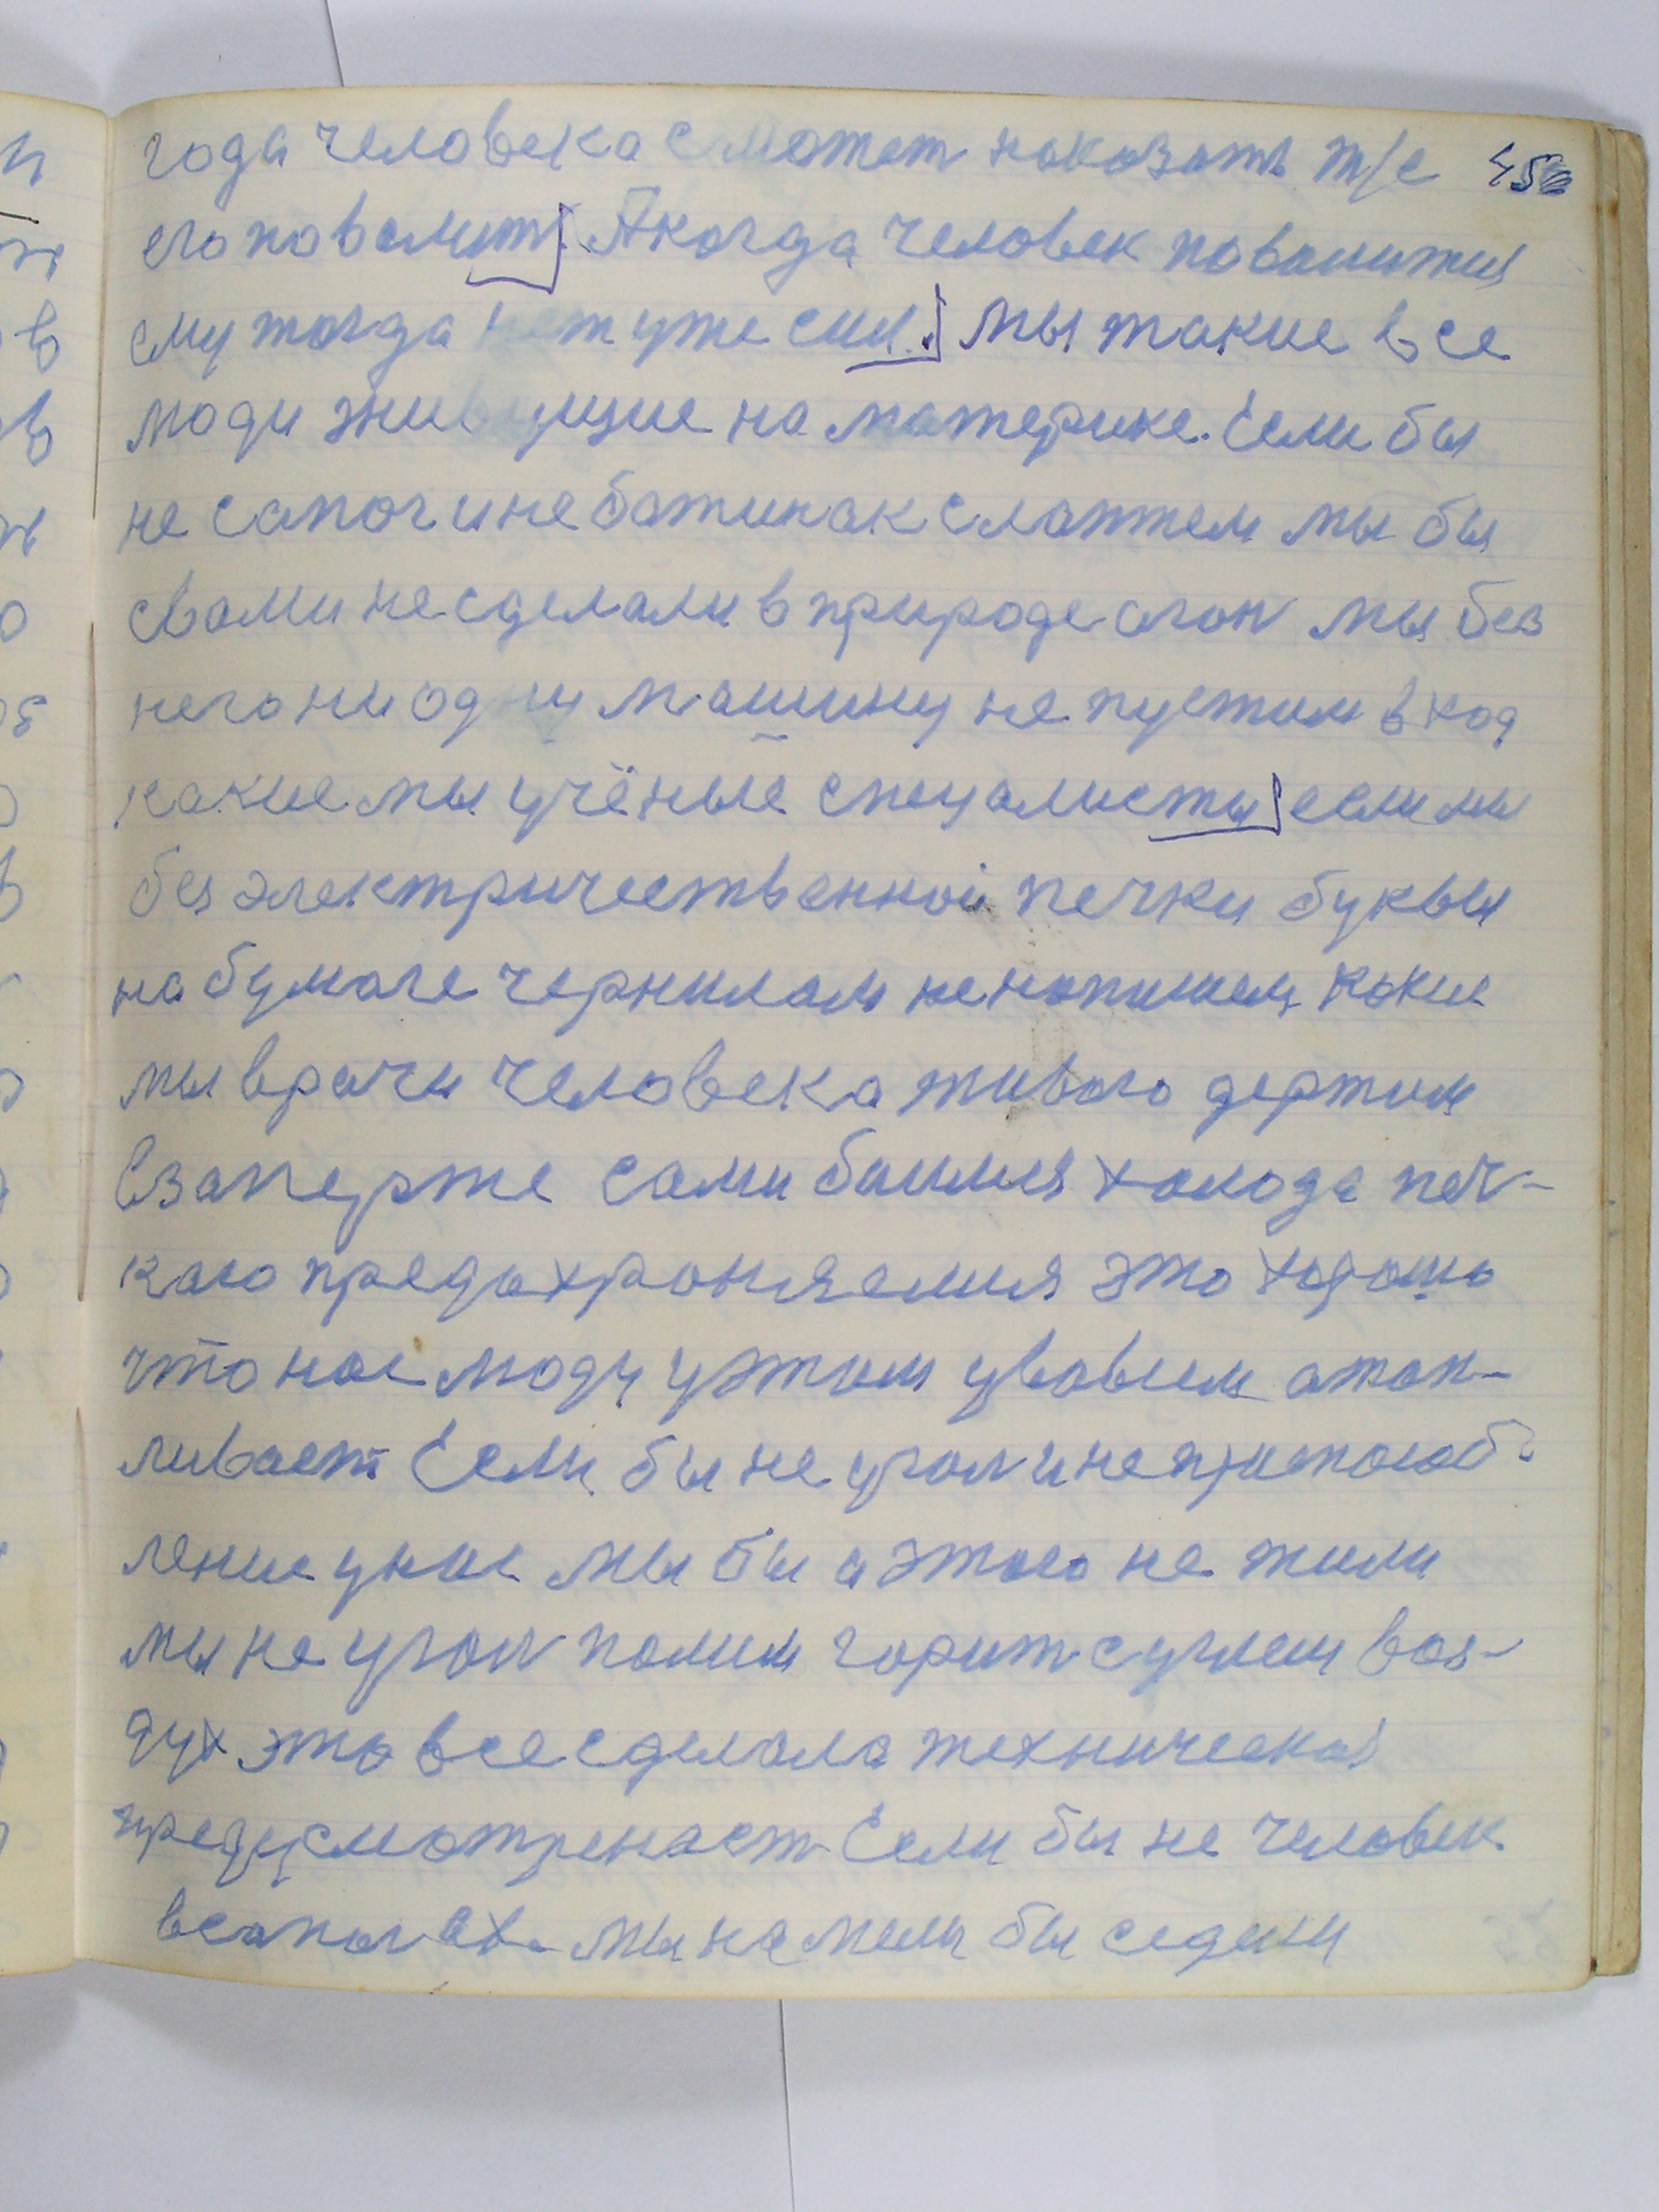 года человека сможет наказать т/е 456
его повалит. А когда человек повалится
ему тогда нет уже сил. мы такие все
люди живущие на материке. Если бы
не сапог и не батинак с лаптем мы бы
свами не сделали в природе огон мы без
него ни одну машину не пустим в ход
какие мы учёные спецалисты если мы
без электричественной печки буквы
на бумаге чернилам не напишем, какие
мы врачи человека живого держим
взаперже сами баимся холода печ-
каю предохраняемия это хорошо
что нас люди уэтим увовсем атап-
ливает Если бы не угол и не приспособ-
ление унас мы бы а этого не жили
мы не угол палим горит с углем воз-
дух это все сделала техническая
предусмотреност Если бы не человек
в сапогах. мы не мели бы седини